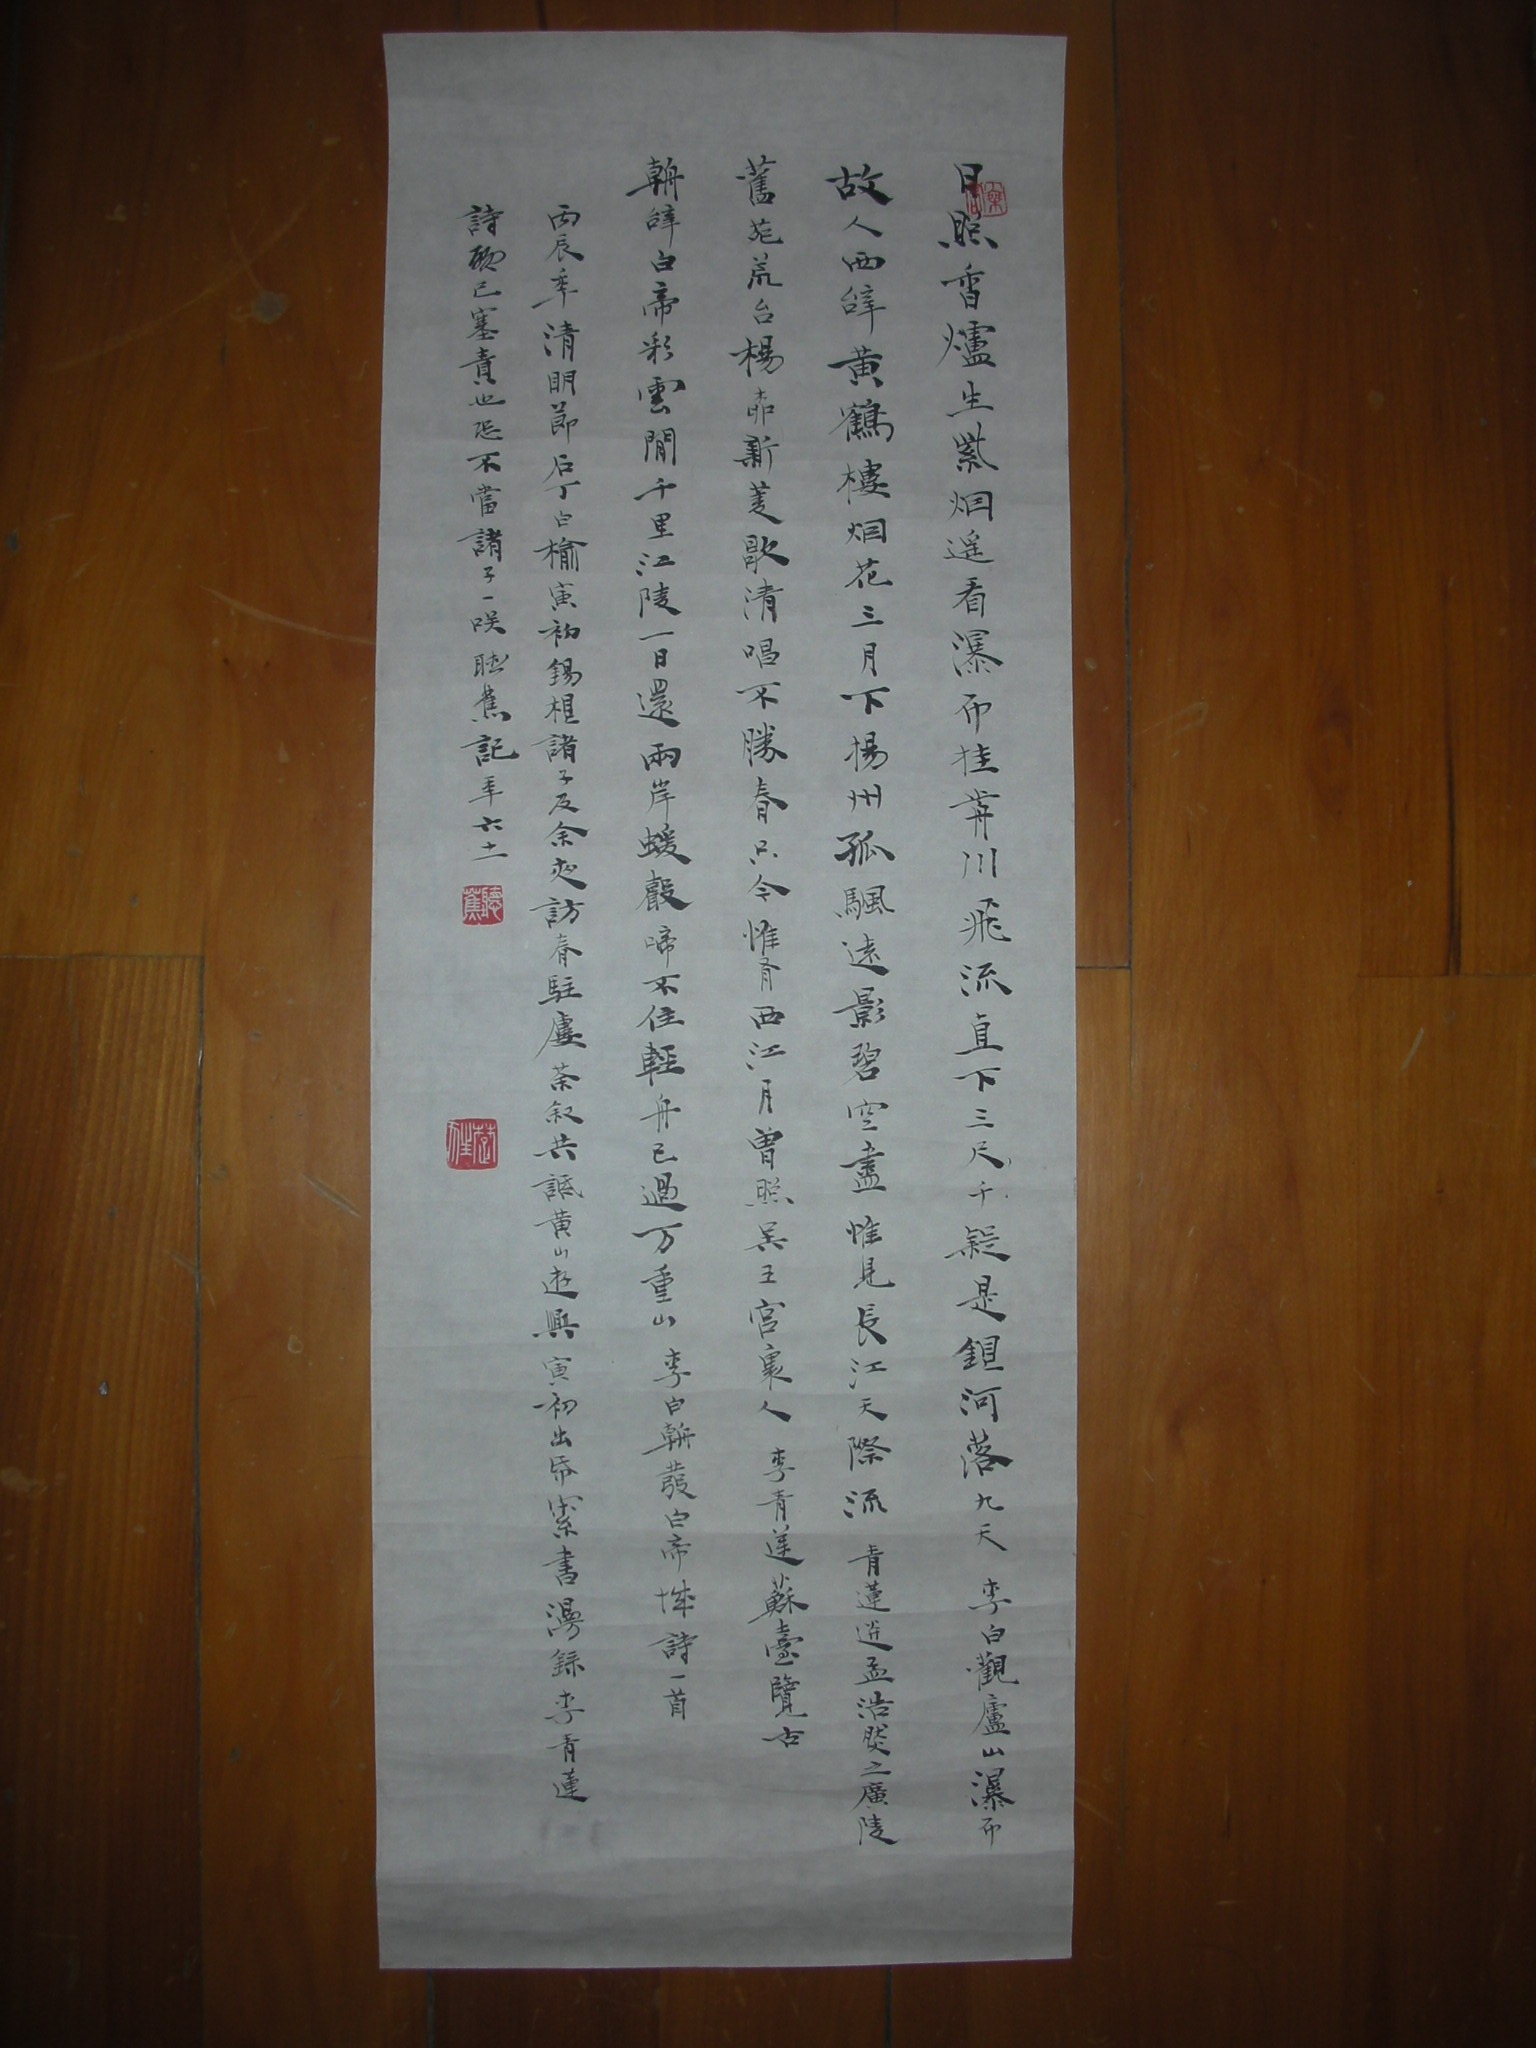 日照香爐生紫烟遥看瀑布挂前川飛流直下三尺千疑是銀河落九天 李白觀廬山瀑布
故人西辞黄鶴樓烟花三月下揚州孤颿遠影碧空盡惟見長江天際流 青蓮送孟浩然之廣陵
舊苑荒台楊柳新菱歌清唱不勝春只今惟有西江月曾照吴王宫裏人 李青蓮蘇臺覽古
朝辞白帝彩雲間千里江陵一日還兩岸蝯聲啼不住輕舟已過万重山 李白朝發白帝城詩一首
丙辰年清明節后丁白榆寅初錫根諸子及余赴訪春駐廬茶叙共議黄山遊興寅初出帋索書漫録李青蓮
詩歌已塞責也恐不當諸子一咲聴蕉記年六十一
聽蕉